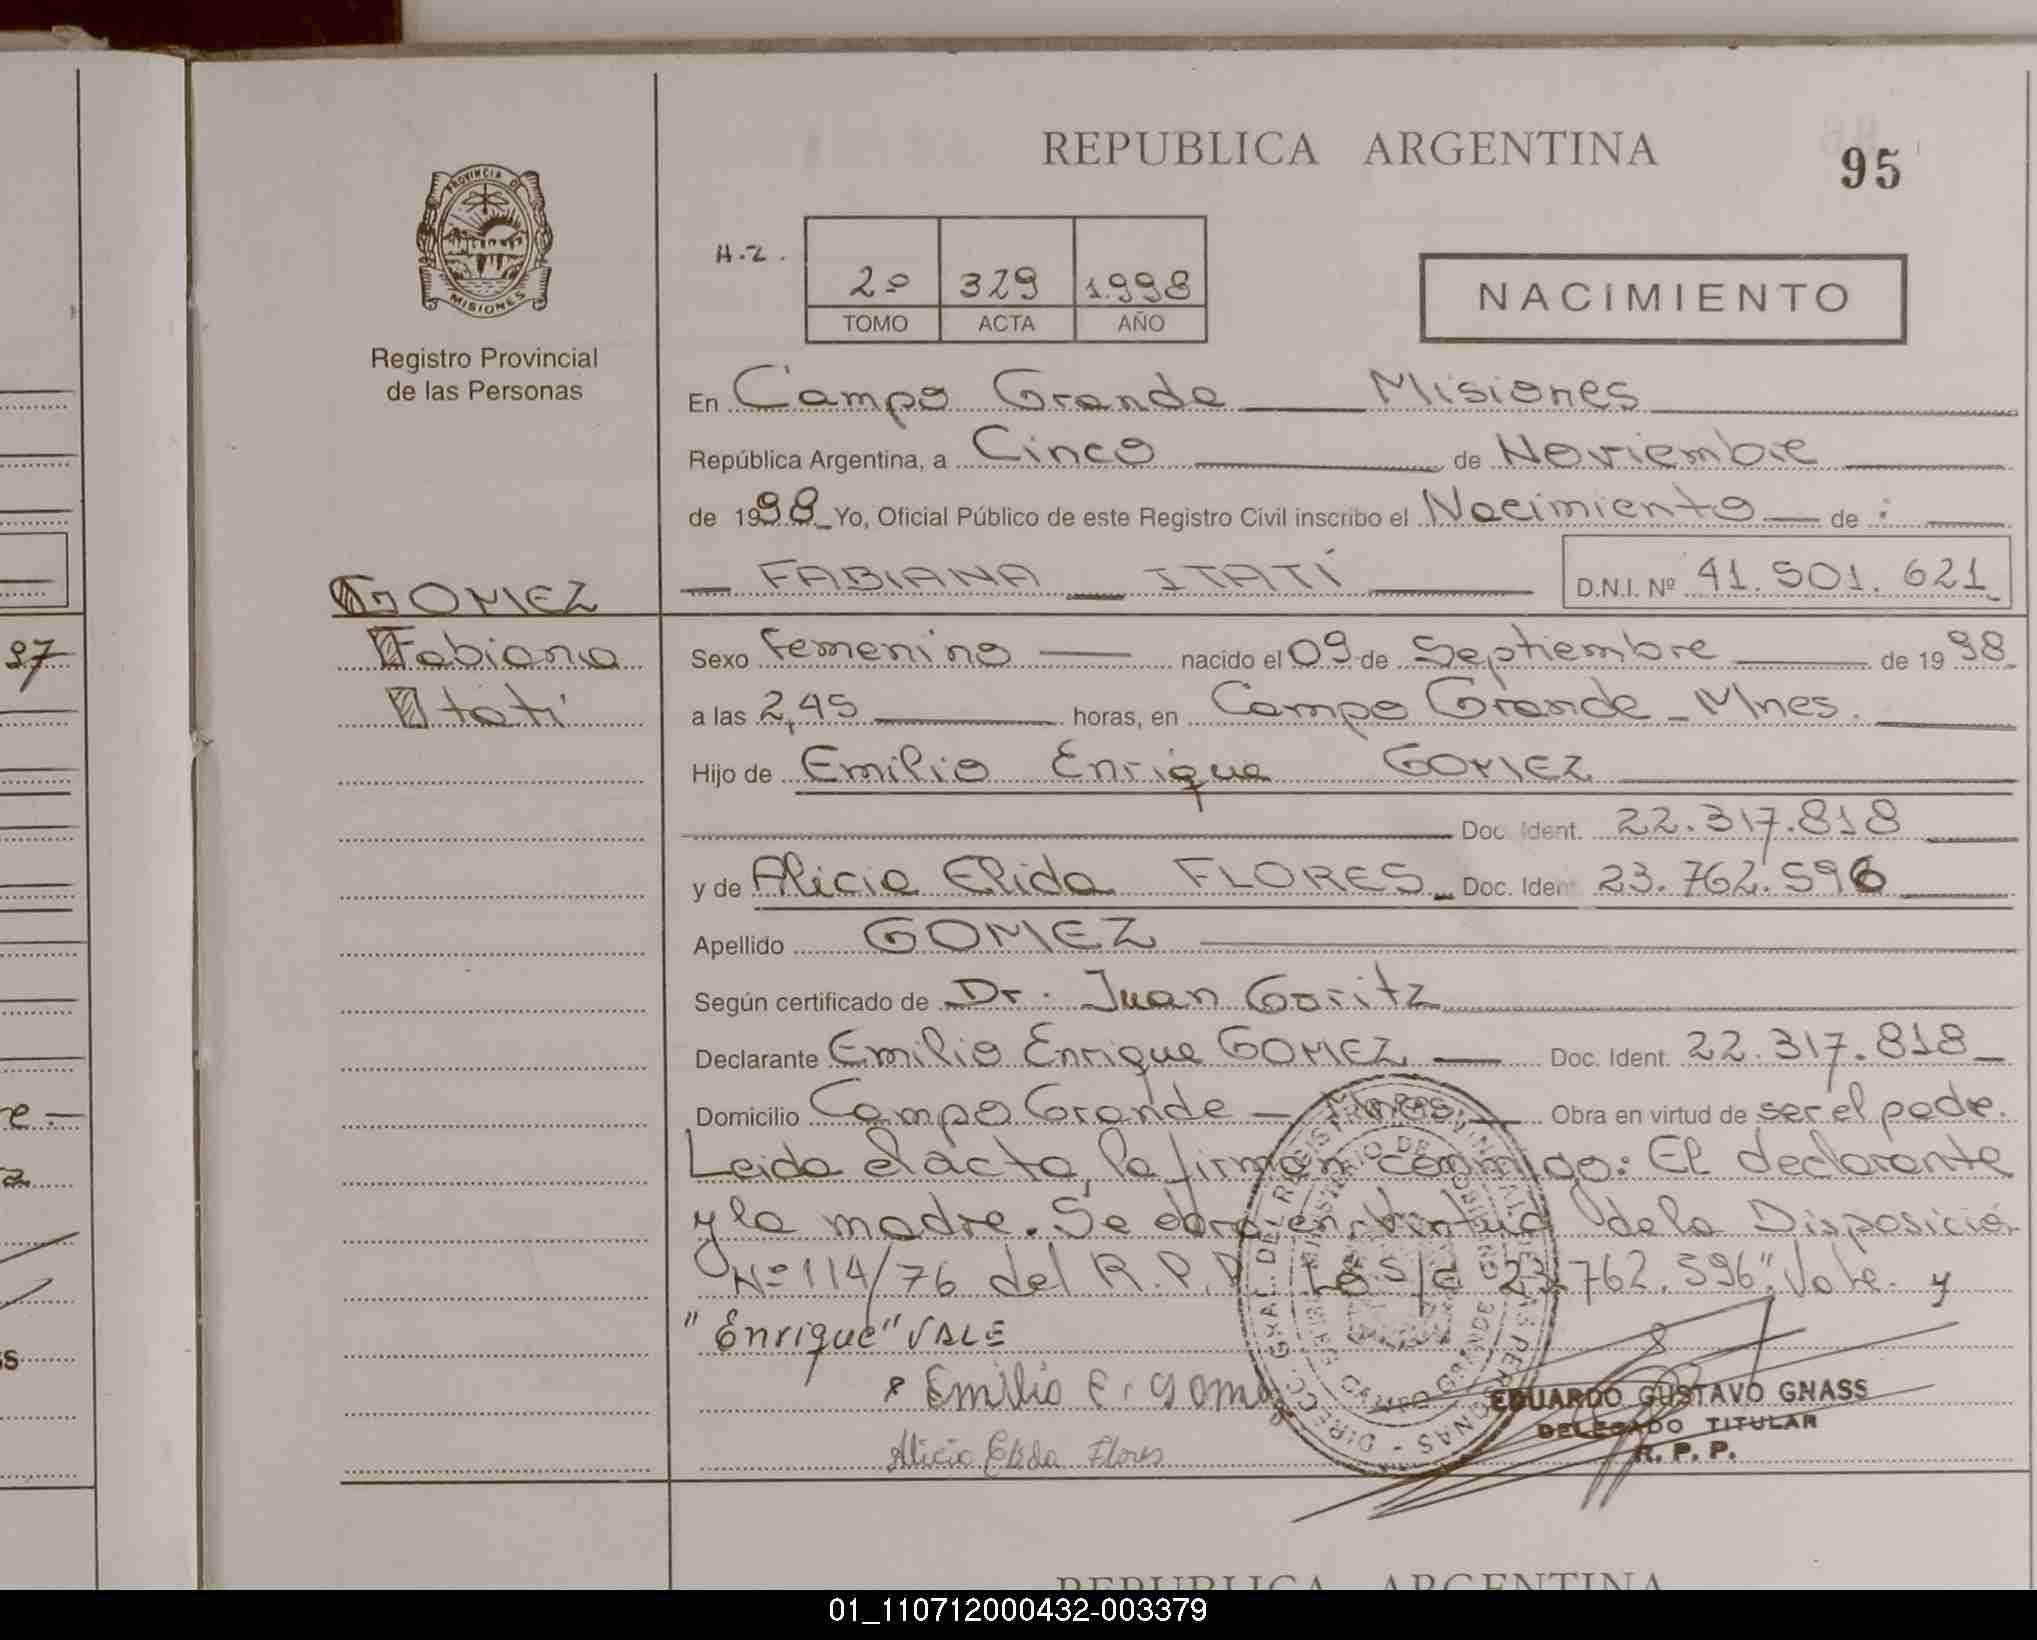 REPUBLICA ARGENTINA
95
PROVINCIA DE
MISIONES
Registro Provincial
de las Personas
H.Z.
2º 329 1.998
TOMO ACTA AÑO
NACIMIENTO
En Campo Grande Misiones
República Argentina, a Cinco de Noviembre
de 1998 Yo, Oficial Público de este Registro Civil inscribo el Nacimiento de :
FABIANA ITATÍ D.N.I. Nº 41.501.621
GOMEZ
Fabiana
Itatí
Sexo Femenino nacido el 09 de Septiembre de 1998
a las 2,45 horas, en Campo Grande - Mnes.
Hijo de Emilio Enrique GOMEZ
Doc. Ident. 22.317.818
y de Alicia Elida FLORES Doc. Ident 23.762.596
Apellido GOMEZ
Según certificado de Dr. Juan Goritz
Declarante Emilio Enrique GOMEZ Doc. Ident. 22.317.818
Domicilio Campo Grande - Mnes Obra en virtud de ser el padre.
Leida el acta, la firman conmigo: El declarante
y la madre. Se obra en virtud de la Disposición
Nº 114/76 del R.P.P. Lo S/C 23.762.596". Vale. y
"Enrique" VALE
Emilio E. Gomez
Alicia Elida Flores
EDUARDO GUSTAVO GNASS
DELEGADO TITULAR
R. P. P.
DIRECC. GRAL. DEL REGISTRO PROVINCIAL DE LAS PERSONAS
MINISTERIO DE GOBIERNO
CAMPO GRANDE
97
re -
REPUBLICA ARGENTINA
01_110712000432-003379